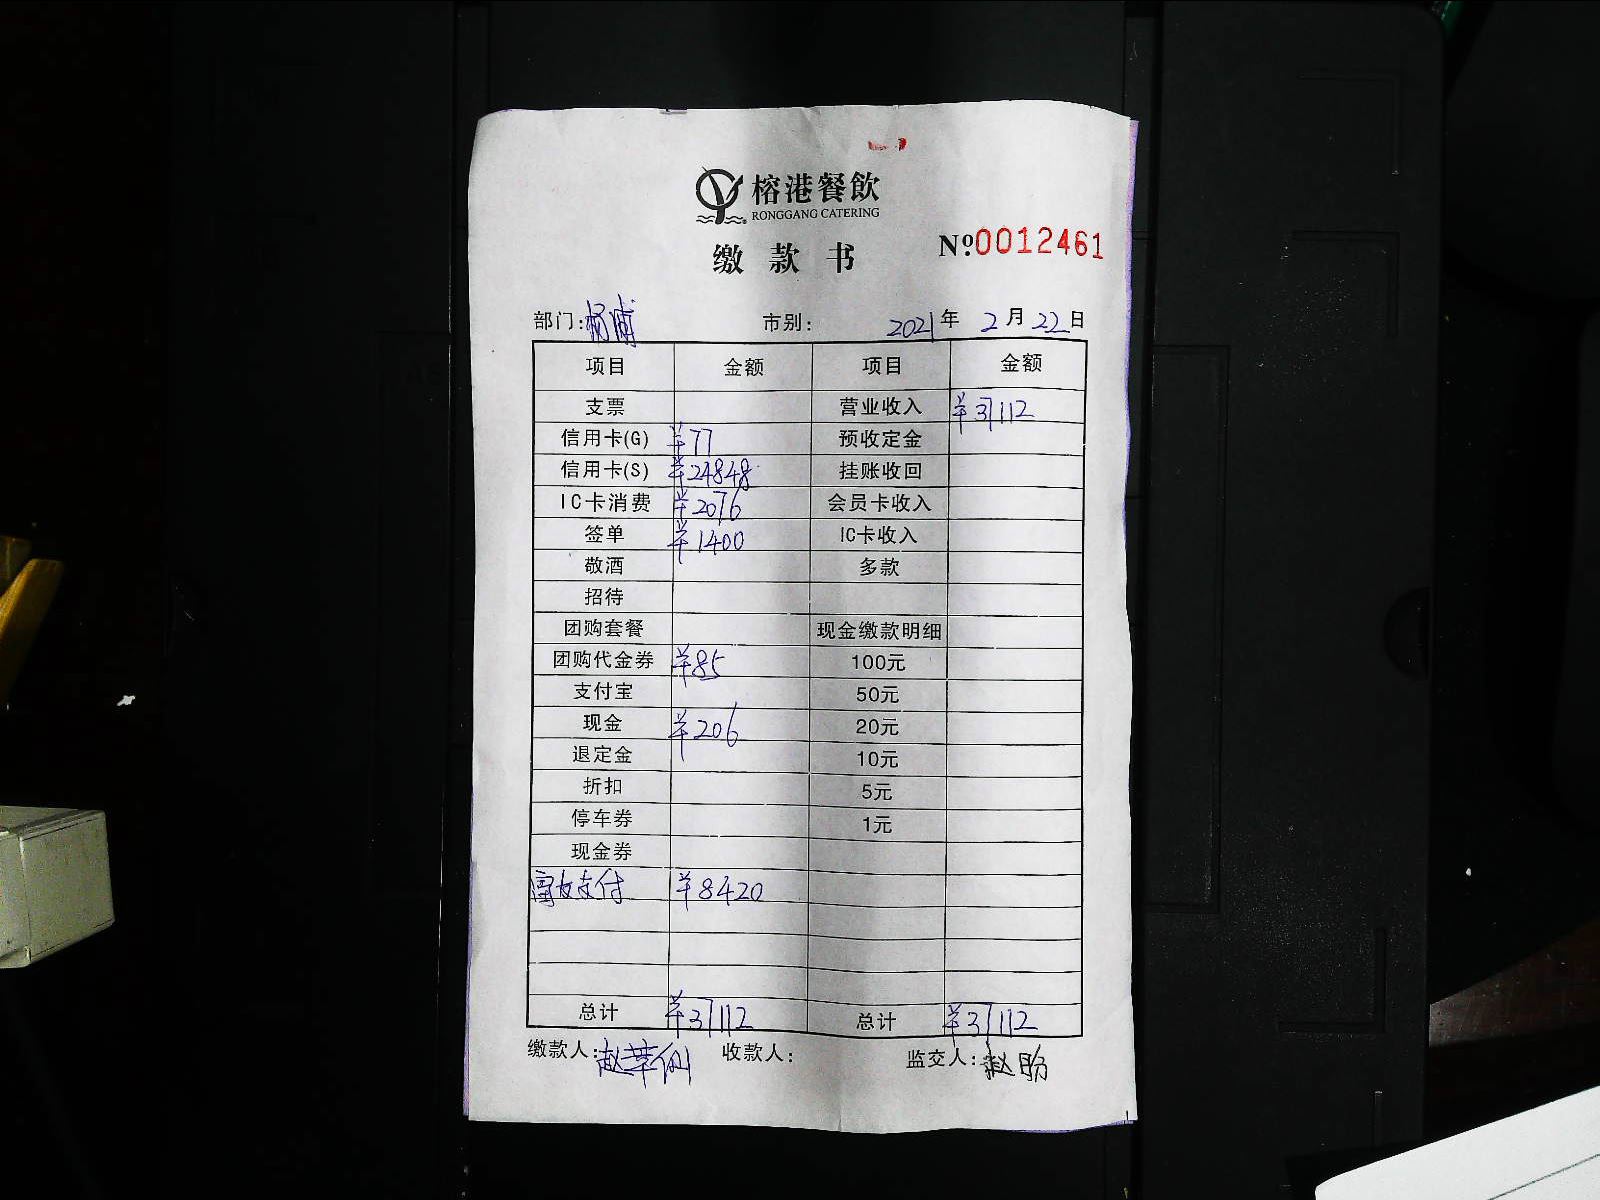 榕港餐飲
RONGGANG CATERING
缴款书
№0012461
部门:杨浦 市别: 2021年2月22日
项目 金额 项目 金额
支票 营业收入 ¥37112
信用卡(G) ¥77 预收定金
信用卡(S) ¥24848 挂账收回
IC卡消费 ¥2076 会员卡收入
签单 ¥1400 IC卡收入
敬酒 多款
招待
团购套餐 现金缴款明细
团购代金券 ¥85 100元
支付宝 50元
现金 ¥206 20元
退定金 10元
折扣 5元
停车券 1元
现金券
支付 ¥8420
总计 ¥37112 总计 ¥37112
缴款人:赵 收款人: 监交人:赵